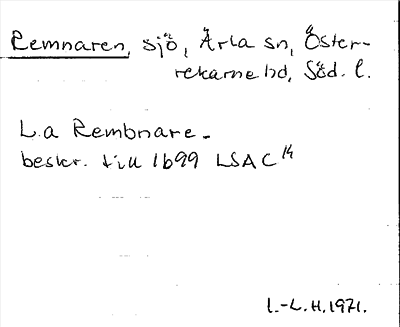 Remnaren, sjö, Ärla sn, Öster-
rekarne hd, Söd. l.
L.a Rembnare.
beskr. till 1699 LSA C14
I.-L.H.1971.